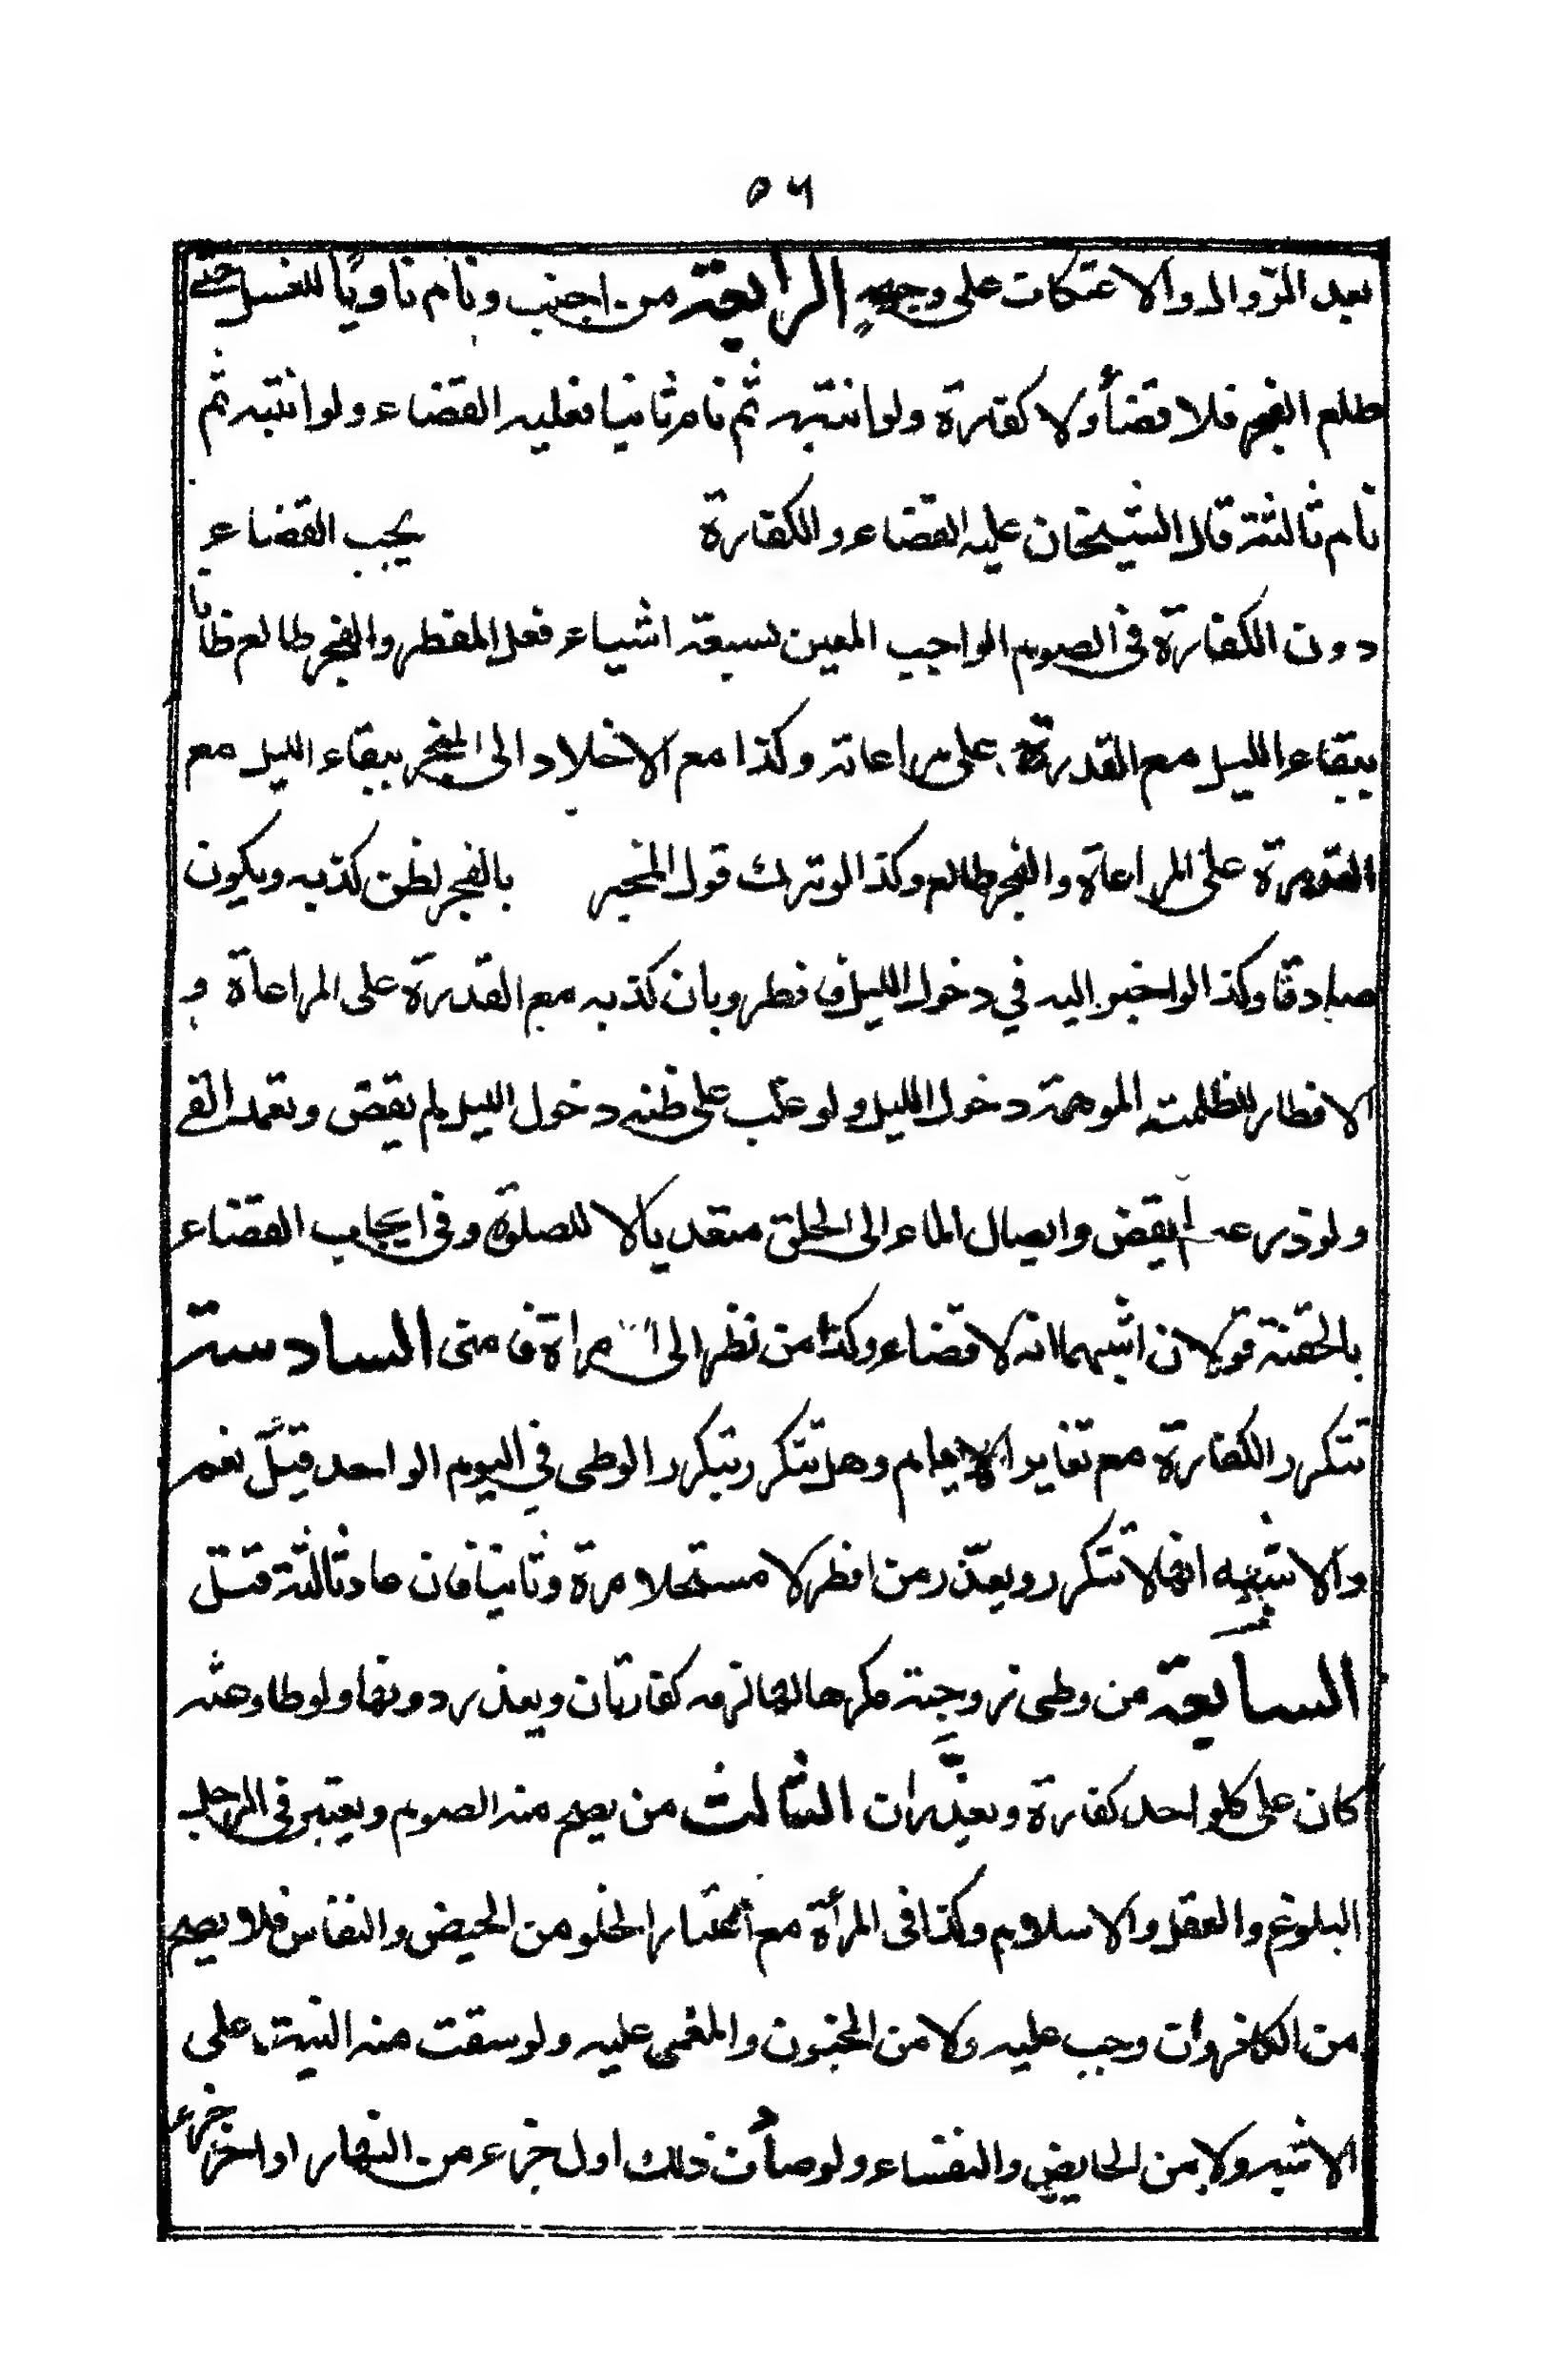 ٥٦
بعد الزوال والاعتكاف على وجهٍ الرابعة من اجنب ونام ناويًا للغسل حتى
طلع الفجر فلا قضأ ولا كفارة ولو انتبه ثم نام ثانيا فعليه القضاء ولو انتبه ثم
نام ثالثة قال الشيخان عليه القضاء والكفارة يجب القضاء
دون الكفارة فى الصوم الواجب المعين بسبعة اشياء فعل المفطر والفجر طالع ظانا
ببقاء الليل مع القدرة على مراعاته وكذا مع الاخلاد الى المخبر ببقاء الليل مع
القدرة على المراعاة والفجر طالع وكذا لو ترك قول المخبر بالفجر لظن كذبه ويكون
صادقا وكذا لو اخبر اليه في دخول الليل فافطر وبان كذبه مع القدرة على المراعاة و
الافطار للظلمة الموهمة دخول الليل ولو غلب على ظنه دخول الليل لم يقض وتعمد القے
ولو ذرعه لم يقض وايصال الماء الى الحلق متعديا لا للصلوة وفى ايجاب القضاء
بالحقنة قولان اشبهما انه لا قضاء وكذا من نظر الى امراة فامنى السادسة
تتكرر الكفارة مع تغاير الايام وهل تتكرر بتكرر الوطى في اليوم الواحد قيل نعم
والاشبه انها لا تتكرر ويعزر من افطر لا مستحلا مرة وثانيا فان عاد ثالثة قتل
السابعة من وطى زوجته مكرها لها لزمه كفارتان ويعذر دونها ولو طاوعته
كان على كل واحد كفارة ويعذران الثالث من يصح منه الصوم ويعتبر فى الرجل
البلوغ والعقل والاسلام وكذا فى المرأة مع اعتبار الخلو من الحيض والنفاس فلا يصح
من الكافر وان وجب عليه ولا من المجنون والمغمى عليه ولو سبقت منه النية على
الاشبه ولا من الحايض والنفساء ولو صادف ذلك اول جزء من النهار او اخر جزء